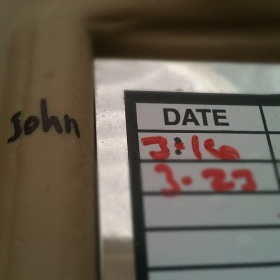 john
DATE
3-16
3-23